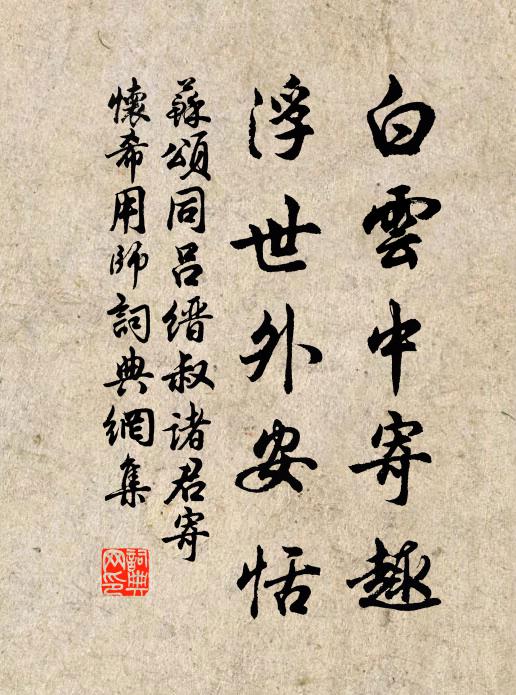 白雲中寄趣
浮世外安恬
蘇頌同呂缙叔諸君寄
懷希用師詞典網集
詞典網印